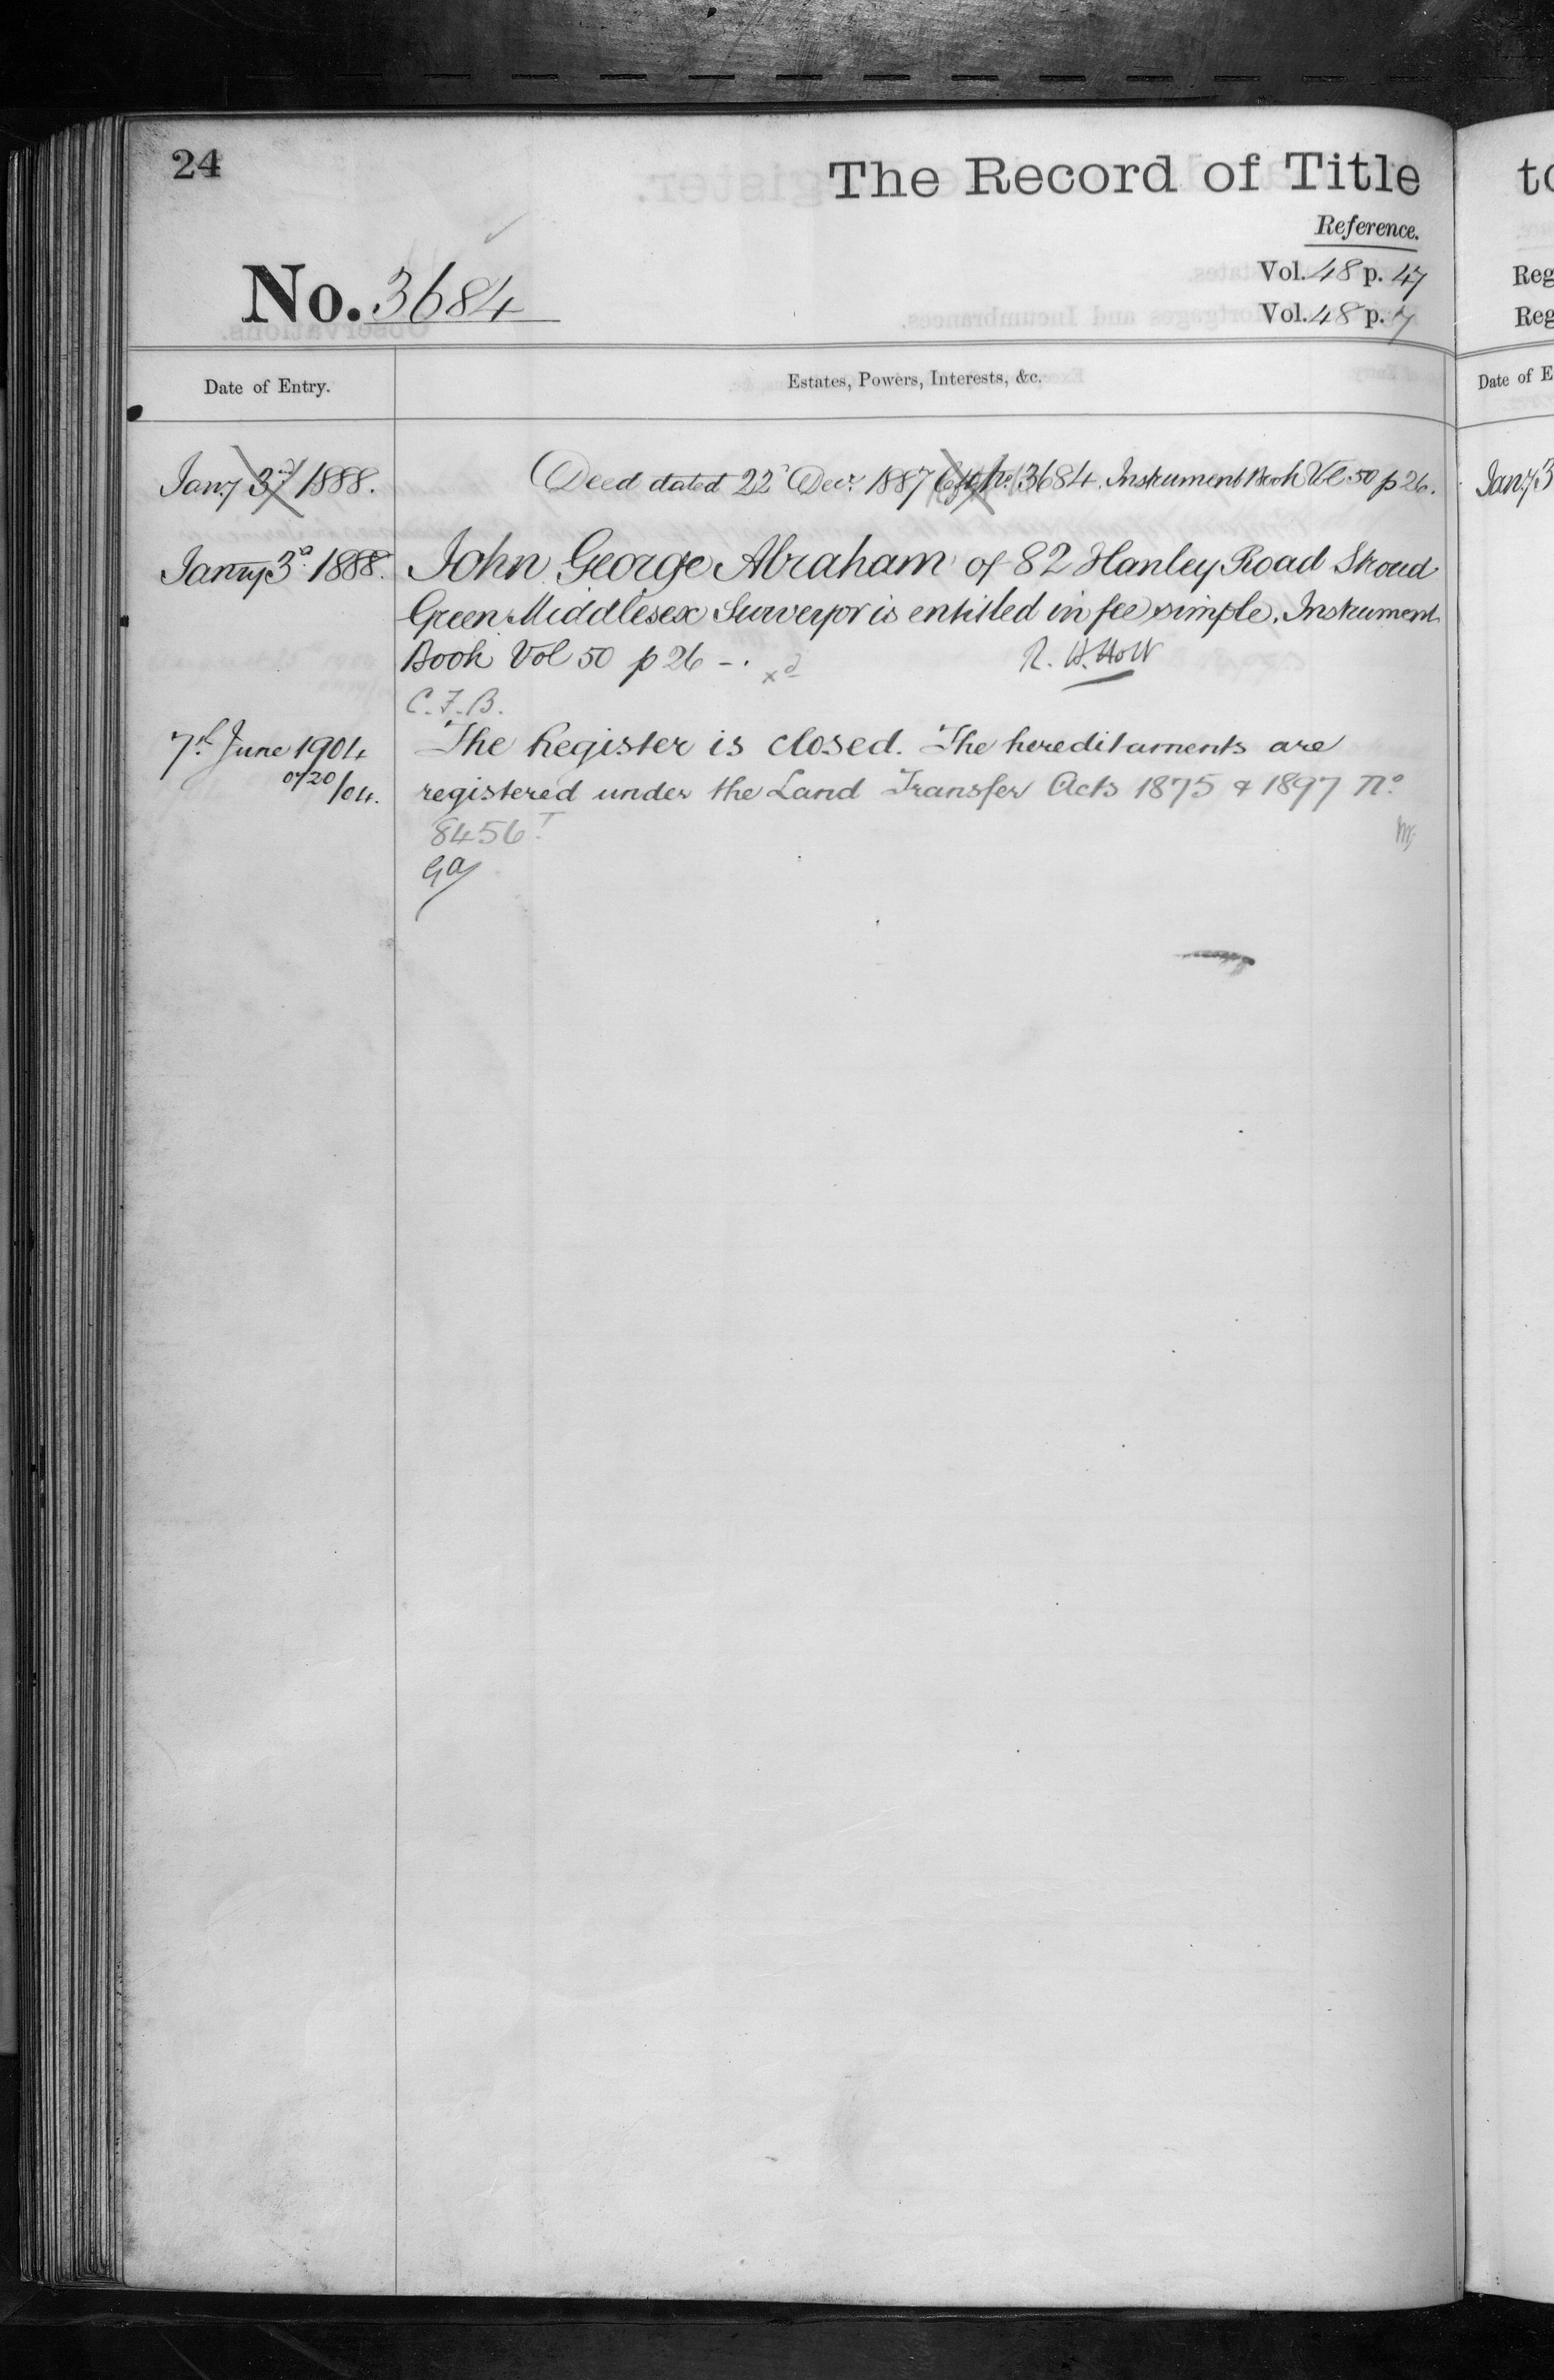 24
The Record of Title
Reference.
No. 3684
Vol. 48 p. 47
Vol. 48 p. 7
Date of Entry.
Estates, Powers, Interests, &c.
Jany 3d 1888.
Deed dated 22d Decr. 1887 No. 3684. Instrument Book Vol 50 p 26.
Janry 3d 1888.
John George Abraham of 82 Hanley Road Stroud
Green Middlesex Surveyor is entitled in fee simple. Instrument
Book Vol 50 p 26 -.
R. H. Holt
C.F.B.
7th June 1904
The Register is closed. The hereditaments are
/04.
registered under the Land Transfer Acts 1875 & 1897 No.
8456
to
Reg
Reg
Date of E
Jany 3